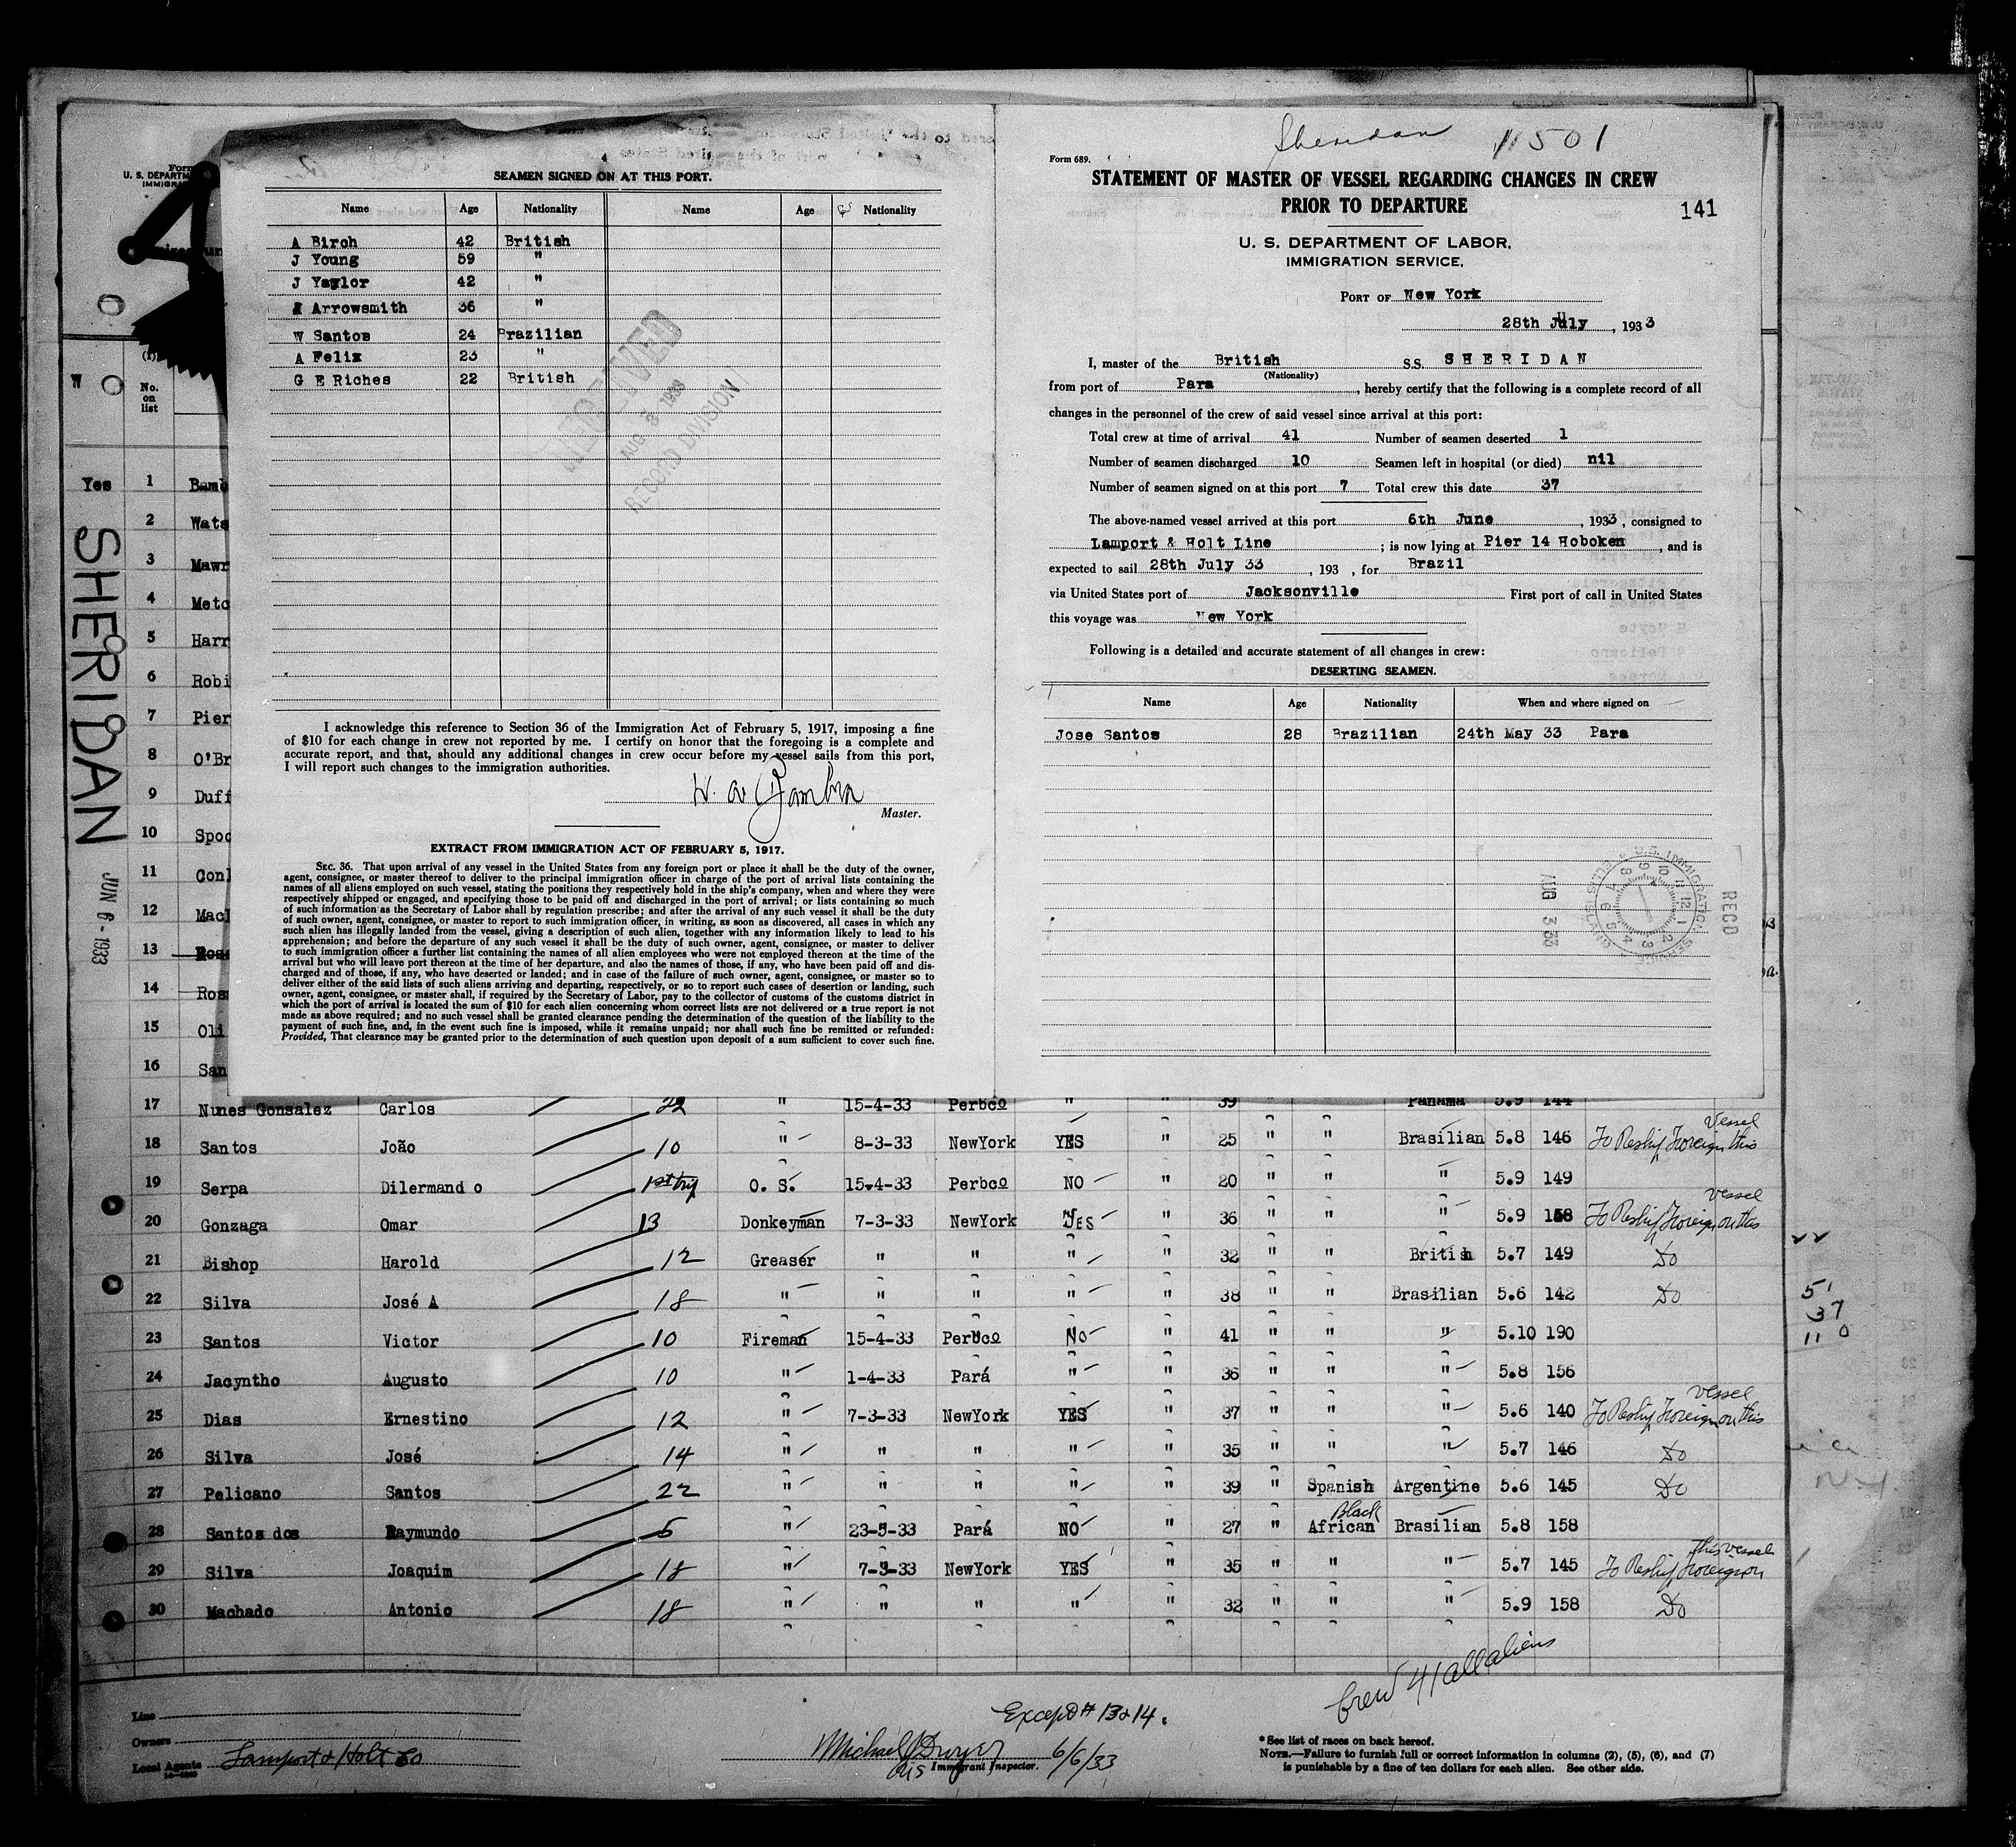 Sheridan 11501
Form 689.
STATEMENT OF MASTER OF VESSEL REGARDING CHANGES IN CREW
PRIOR TO DEPARTURE
141
U. S. DEPARTMENT OF LABOR,
IMMIGRATION SERVICE,
PORT OF New York
28th July, 1933
I, master of the British S.S. SHERIDAN
(Nationality)
from port of Para, hereby certify that the following is a complete record of all
changes in the personnel of the crew of said vessel since arrival at this port:
Total crew at time of arrival 41 Number of seamen deserted 1
Number of seamen discharged 10 Seamen left in hospital (or died) nil
Number of seamen signed on at this port 7 Total crew this date 37
The above-named vessel arrived at this port 6th June, 1933, consigned to
Lamport & Holt Line; is now lying at Pier 14 Hoboken, and is
expected to sail 28th July 33, 193 , for Brazil
via United States port of Jacksonville First port of call in United States
this voyage was New York
Following is a detailed and accurate statement of all changes in crew:
DESERTING SEAMEN.
Name Age Nationality When and where signed on
Jose Santos 28 Brazilian 24th May 33 Para
U.S. IMMIGRATION SERVICE
AUG 3 33
REC'D
4
SEAMEN SIGNED ON AT THIS PORT.
Name Age Nationality Name Age Nationality
A Birch 42 British
J Young 59 "
J Yaylor 42 "
Arrowsmith 36 "
W Santos 24 Brazilian
A Felix 23 "
G E Riches 22 British
RECEIVED
AUG 3 1933
RECORD DIVISION
I acknowledge this reference to Section 36 of the Immigration Act of February 5, 1917, imposing a fine
of $10 for each change in crew not reported by me. I certify on honor that the foregoing is a complete and
accurate report, and that, should any additional changes in crew occur before my vessel sails from this port,
I will report such changes to the immigration authorities.
Master.
EXTRACT FROM IMMIGRATION ACT OF FEBRUARY 5, 1917.
SEC. 36. That upon arrival of any vessel in the United States from any foreign port or place it shall be the duty of the owner,
agent, consignee, or master thereof to deliver to the principal immigration officer in charge of the port of arrival lists containing the
names of all aliens employed on such vessel, stating the positions they respectively hold in the ship's company, when and where they were
respectively shipped or engaged, and specifying those to be paid off and discharged in the port of arrival; or lists containing so much
of such information as the Secretary of Labor shall by regulation prescribe; and after the arrival of any such vessel it shall be the duty
of such owner, agent, consignee, or master to report to such immigration officer, in writing, as soon as discovered, all cases in which any
such alien has illegally landed from the vessel, giving a description of such alien, together with any information likely to lead to his
apprehension; and before the departure of any such vessel it shall be the duty of such owner, agent, consignee, or master to deliver
to such immigration officer a further list containing the names of all alien employees who were not employed thereon at the time of the
arrival but who will leave port thereon at the time of her departure, and also the names of those, if any, who have been paid off and dis-
charged and of those, if any, who have deserted or landed; and in case of the failure of such owner, agent, consignee, or master so to
deliver either of the said lists of such aliens arriving and departing, respectively, or so to report such cases of desertion or landing, such
owner, agent, consignee, or master shall, if required by the Secretary of Labor, pay to the collector of customs of the customs district in
which the port of arrival is located the sum of $10 for each alien concerning whom correct lists are not delivered or a true report is not
made as above required; and no such vessel shall be granted clearance pending the determination of the question of the liability to the
payment of such fine, and, in the event such fine is imposed, while it remains unpaid; nor shall such fine be remitted or refunded:
Provided, That clearance may be granted prior to the determination of such question upon deposit of a sum sufficient to cover such fine.
Form
U. S. DEPARTM
IMMIGRA
W
(1)
No.
on
list
SHERIDAN
JUN 6 - 1933
Yes 1 Bamb
2 Wats
3 Mawr
4 Metc
5 Harr
6 Robi
7 Pier
8 O'Br
9 Duff
10 Spoo
11 Conl
12 Macl
13 Ross
14 Ros
15 Oli
16 San
17 Nunes Gonsalez Carlos 22 " 15-4-33 Perbco " " 39 " " Panama 5.9 144
18 Santos João 10 " 8-3-33 NewYork YES " 25 " " Brasilian 5.8 146 To Reship Foreign this vessel
19 Serpa Dilermando 1st trip O. S. 15-4-33 Perbco NO " 20 " " " 5.9 149
20 Gonzaga Omar 13 Donkeyman 7-3-33 NewYork YES " 36 " " " 5.9 158 To Reship Foreign on this vessel
21 Bishop Harold 12 Greaser " " " " 32 " " British 5.7 149 Do
22 Silva José A 18 " " " " " 38 " " Brasilian 5.6 142 Do
23 Santos Victor 10 Fireman 15-4-33 Perbco No " 41 " " " 5.10 190
24 Jacyntho Augusto 10 " 1-4-33 Pará " " 36 " " " 5.8 156
25 Dias Ernestino 12 " 7-3-33 NewYork YES " 37 " " " 5.6 140 To Reship Foreign on this vessel
26 Silva José 14 " " " " " 35 " " " 5.7 146 Do
27 Pelicano Santos 22 " " " " " 39 " Spanish Argentine 5.6 145 Do
28 Santos dos Raymundo 5 " 23-5-33 Pará NO " 27 " Black African Brasilian 5.8 158
29 Silva Joaquim 18 " 7-3-33 NewYork YES " 35 " " " 5.7 145 To Reship Foreign on this vessel
30 Machado Antonio 18 " " " " " 32 " " " 5.9 158 Do
51
37
11 0
Crew 41 all aliens
Except # 13 & 14.
Line
Owners
Local Agents Lamport & Holt Co
Michael J Dwyer 6/6/33
Immigrant Inspector.
* See list of races on back hereof.
NOTE.—Failure to furnish full or correct information in columns (2), (5), (6), and (7)
is punishable by a fine of ten dollars for each alien. See other side.